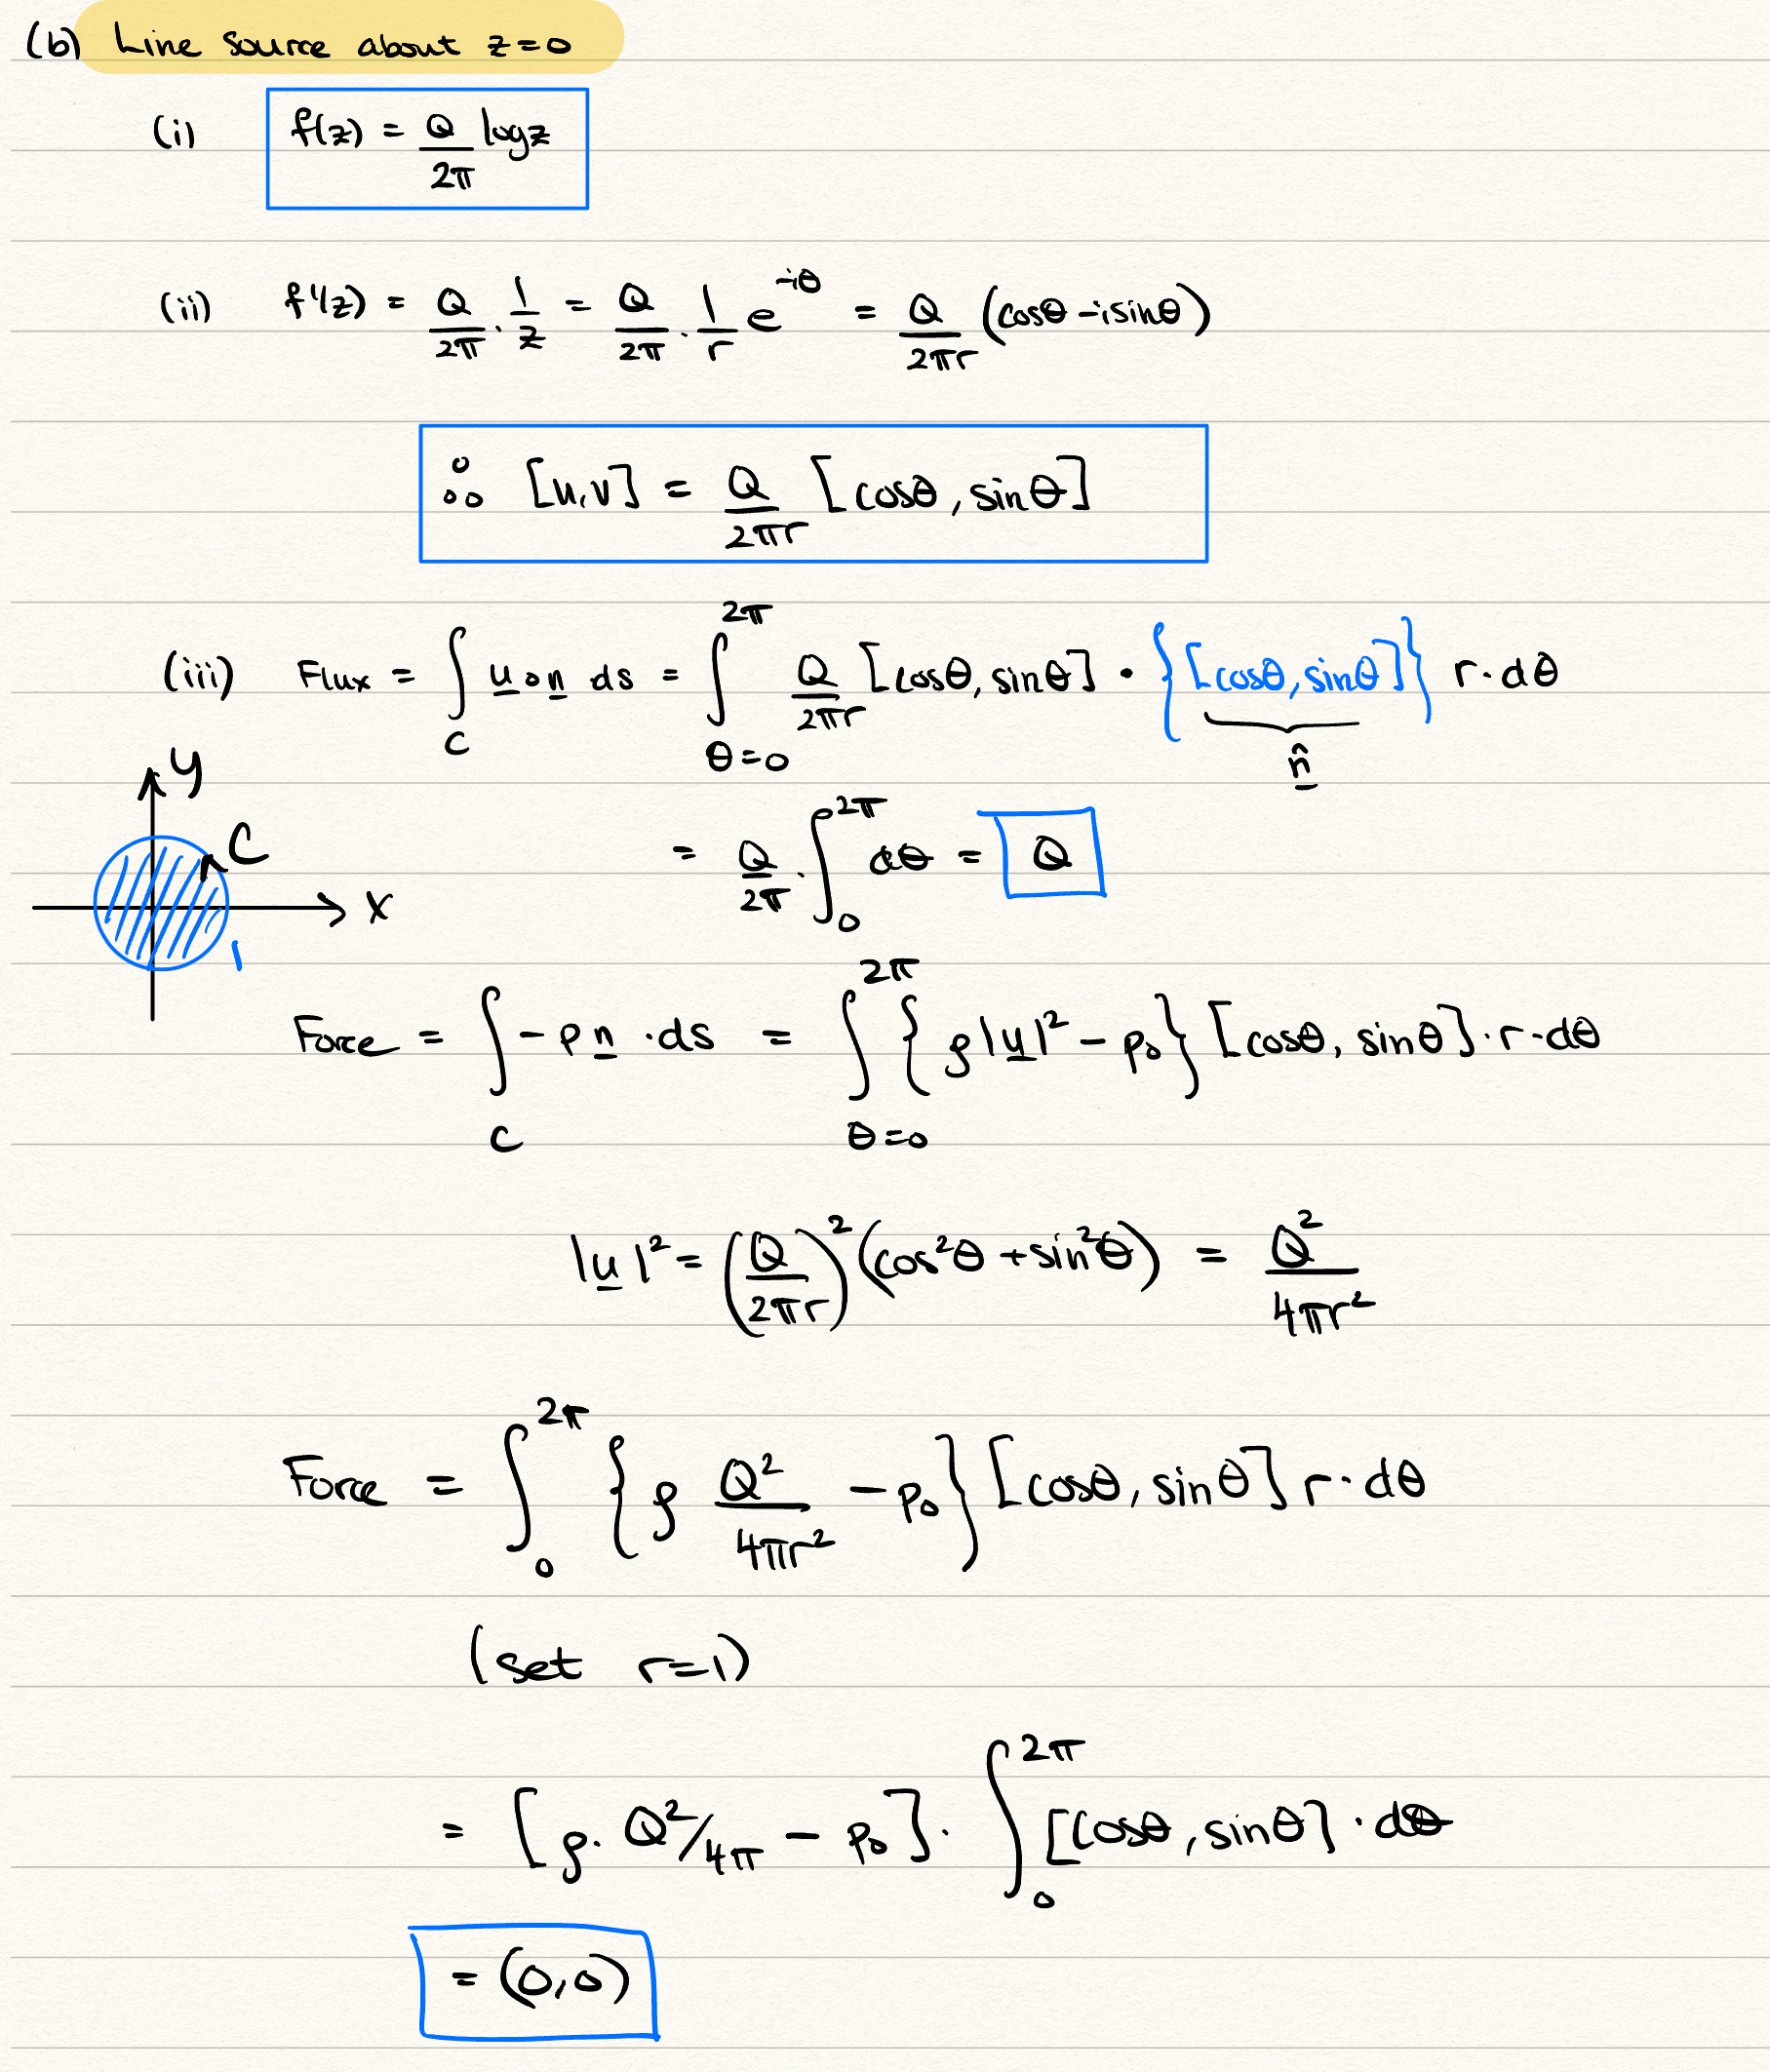 (b) Line source about z=0
(i) f(z) = Q/2π log z
(ii) f'(z) = Q/2π · 1/z = Q/2π · 1/r e^{-iθ} = Q/2πr (cosθ - i sinθ)
∴ [u,v] = Q/2πr [cosθ, sinθ]
(iii) Flux = ∫_C u·n ds = ∫_{θ=0}^{2π} Q/2πr [cosθ, sinθ] · {[cosθ, sinθ]} r·dθ
n̂
y
C
x
1
= Q/2π · ∫_0^{2π} dθ = Q
Force = ∫_C -p n · ds = ∫_{θ=0}^{2π} {ρ|u|² - p₀} [cosθ, sinθ]·r·dθ
|u|² = (Q/2πr)² (cos²θ + sin²θ) = Q²/4πr²
Force = ∫_0^{2π} {ρ Q²/4πr² - p₀} [cosθ, sinθ] r·dθ
(set r=1)
= [ρ· Q²/4π - p₀] · ∫_0^{2π} [cosθ, sinθ] · dθ
= (0,0)